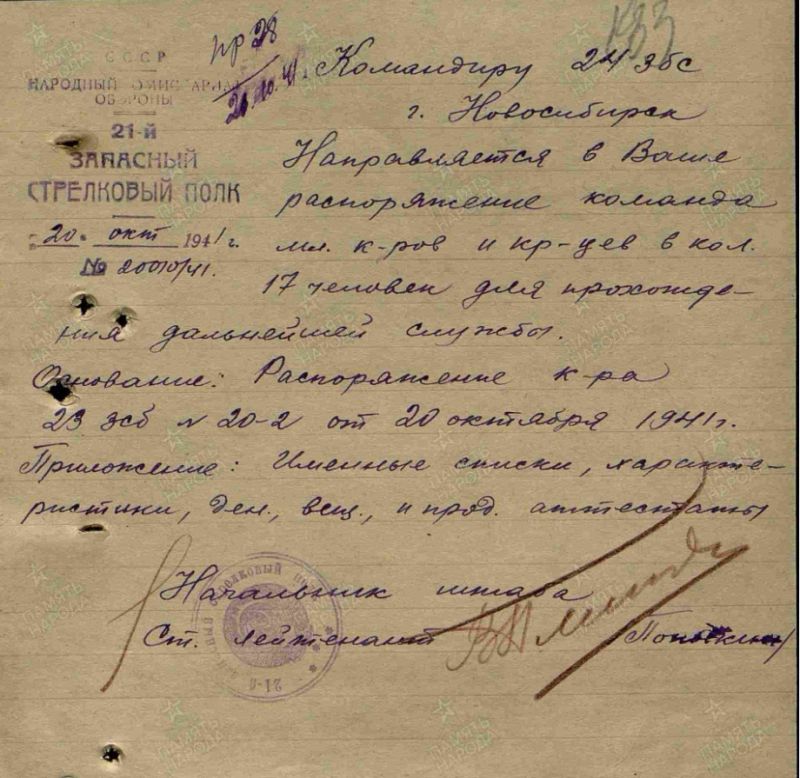 183
пр 28
26.10.41
СССР
НАРОДНЫЙ КОМИССАРИАТ
ОБОРОНЫ
21-Й
ЗАПАСНЫЙ
СТРЕЛКОВЫЙ ПОЛК
"20" окт 1941 г.
№ 20010/41.
Командиру 24 збс
г. Новосибирск
Направляется в Ваше
распоряжение команда
мл. к-ров и кр-цев в кол.
17 человек для прохожде-
ния дальнейшей службы.
Основание: Распоряжение к-ра
23 зсб № 20-2 от 20 октября 1941 г.
Приложение: Именные списки, характе-
ристики, ден., вещ., и прод. аттестаты
Начальник штаба
Ст. лейтенант
ПАМЯТЬ НАРОДА